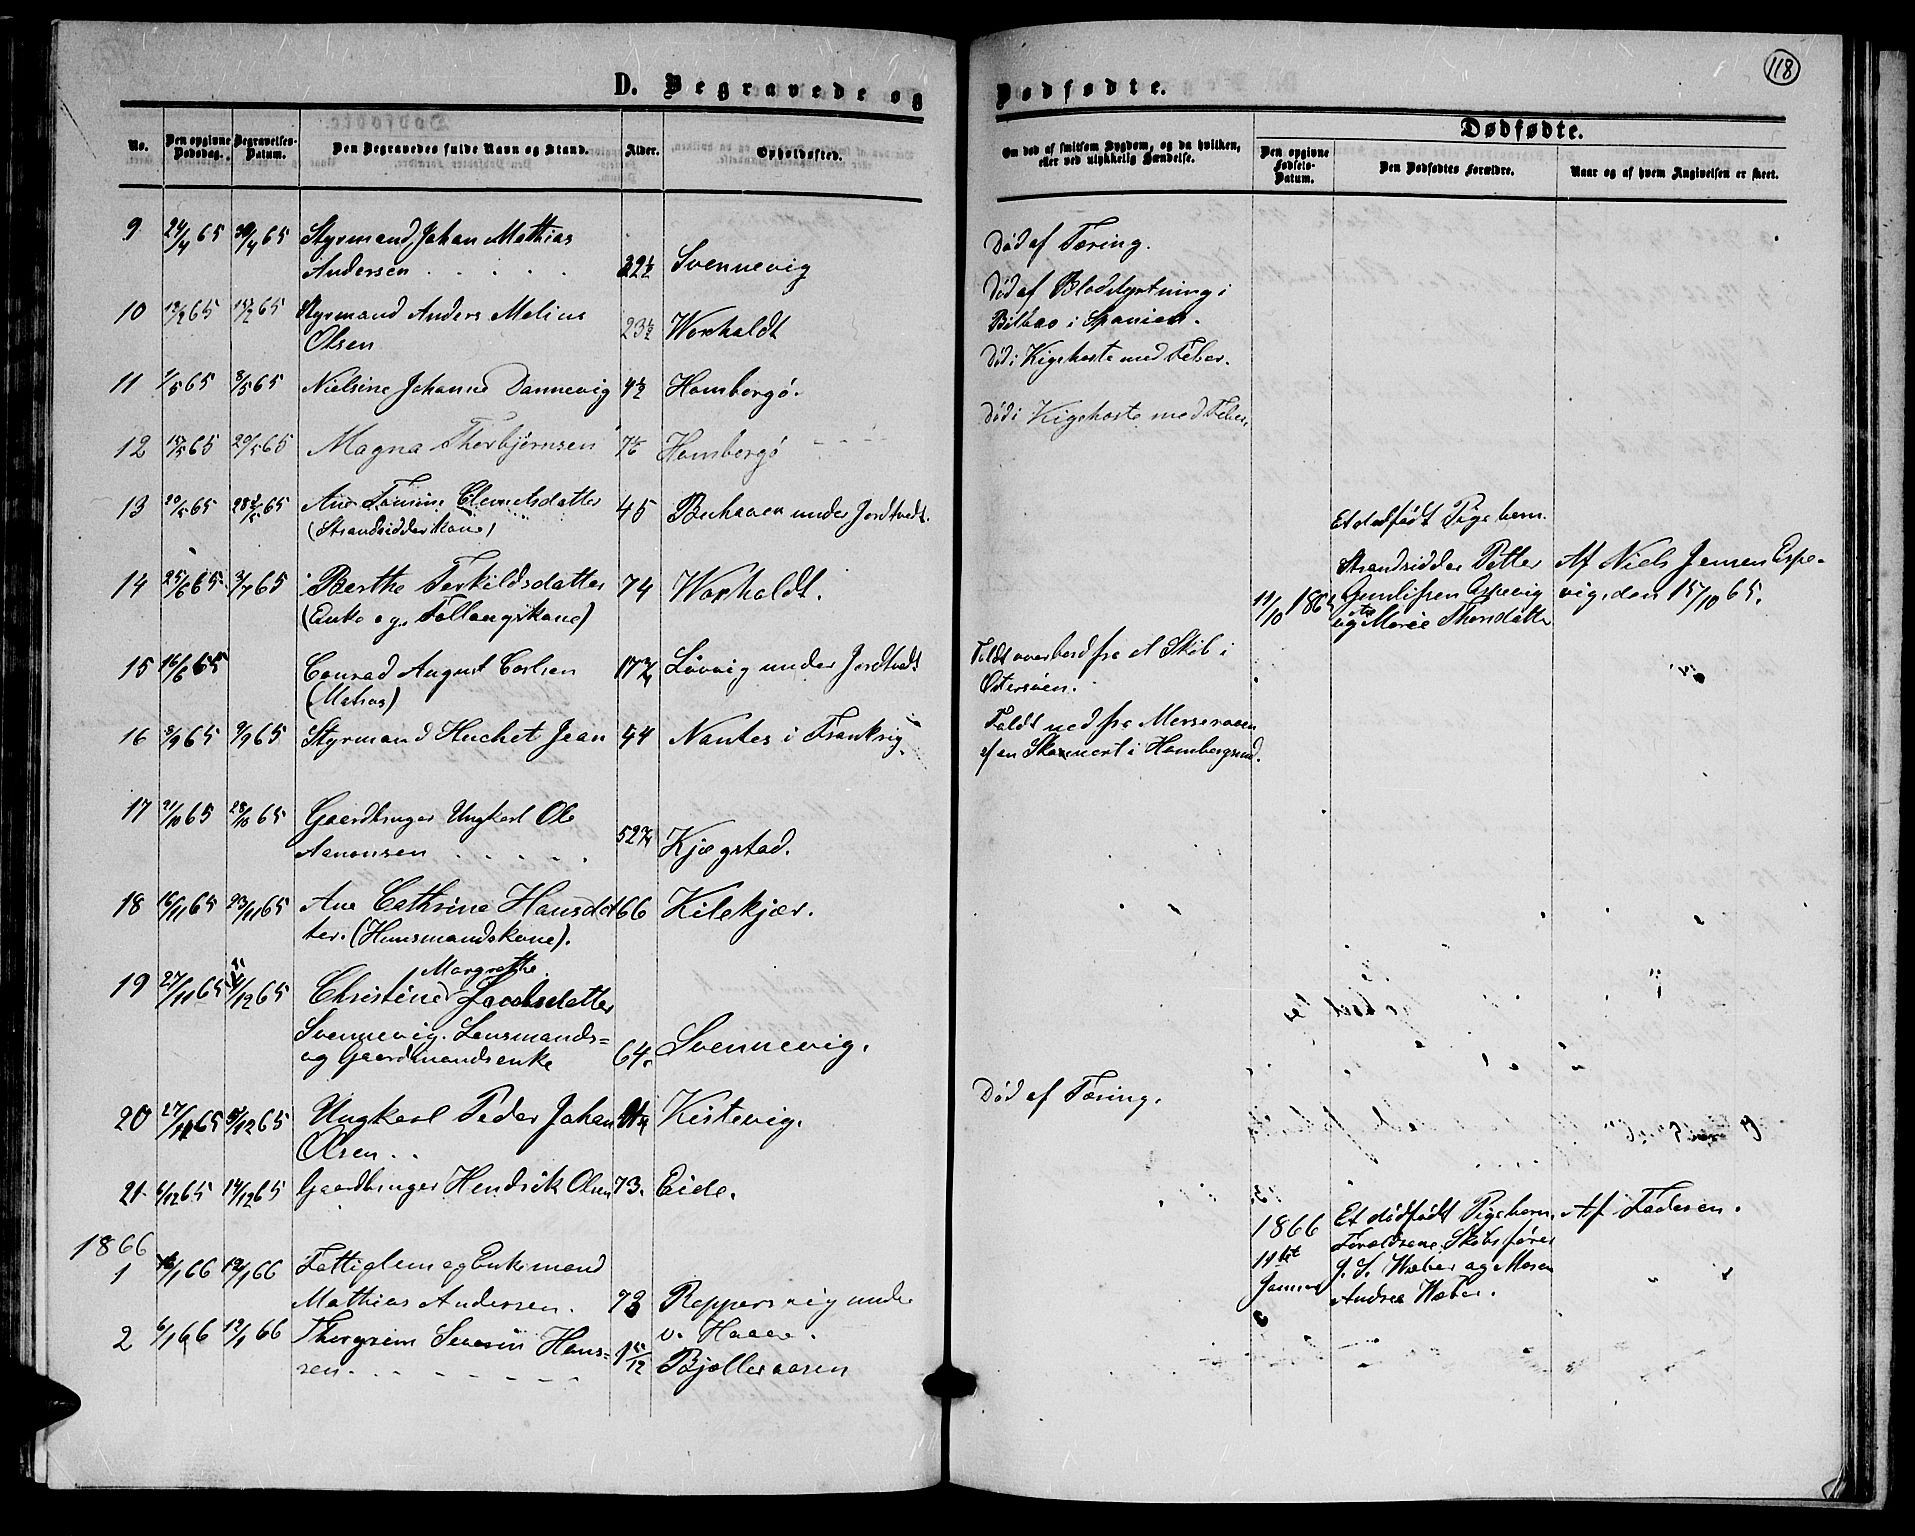 118
D. Begravede og Dødfødte.
No. Den opgivne Dødsdag. Begravelses-Datum. Den Begravedes fulde Navn og Stand. Alder. Opholdssted.
Om død af smitsom Sygdom, og da hvilken, eller ved ulykkelig Hændelse.
Dødfødte.
Den opgivne Fødsels-Datum. Den Dødfødtes Forældre. Naar og af hvem Angivelsen er skeet.
9 24/4 65 30/4 65 Styrmand Johan Mathias
Andersen . . . . . 32½ Svennevig
Død af Tæring.
10 65 65 Styrmand Anders Melius
Olsen 23½ Voxholdt
Død af Blodstyrtning i
Bilbao i Spanien.
11 1/5 65 8/5 65 Nielsine Johanne Dannevig 4½ Homborgø.
Død i Kigehoste med Feber.
12 65 20/5 65 Magna Thorbjørnsen Homborgø
Død i Kigehoste med Feber.
13 20/5 65 28/5 65 Ane Clemetsdatter
(Strandsidderkone) 45 under Jortveit.
14 25/6 65 3/7 65 Berthe Terkildsdatter 74 Voxholdt.
(Enke og Follaugskone)
Et dødfødt Pigebarn.
Strandsidder Petter
11/10 1865 Espevig
og Marie
Af Niels Jensen Espe-
vig, den 15/10 65.
15 16/6 65 Conrad August Carlsen Løvvig under Jortveit
(Matros)
Faldt overbord fra et Skib i
Østersøen.
16 3/9 65 9/9 65 Styrmand Huchet Jean 44 Nantes i Frankrig.
Faldt ned fra Mersraaen
af en Skonnert i Hombergsund.
17 21/10 65 28/10 65 Gaardbruger Ungkarl Ole
Aanonsen . . . . . 52 Kjægstad.
18 16/11 65 23/11 65 Ane Cathrine Hansdat 66 Kilekjær.
ter. (Huusmandskone).
19 27/11 65 4/12 65 Christine Margrethe Jacobsdatter
Svennevig. Lensmands=
og Gaardmandsenke 64. Svennevig.
20 27/11 65 5/12 65 Ungkarl Peder Johan Kistevig.
Olsen . .
Død af Tæring.
21 6/12 65 14/12 65 Gaardbruger Hendrik Olsen 73. Eide.
1866
1 1 66 12/1 66 Fattiglem og Enkemand
Mathias Andersen. 73 Reppersvig under
v. Haave.
1866
11te
Januar
Et dødfødt Pigebarn.
Forældrene Skibsfører
J. S. Weber og Maren
Andrea Weber.
Af Faderen.
2 6/1 66 12/1 66 Thorgrim Severin Hans=
sen. . . . . . . 1 5/12 Bjelleraasen